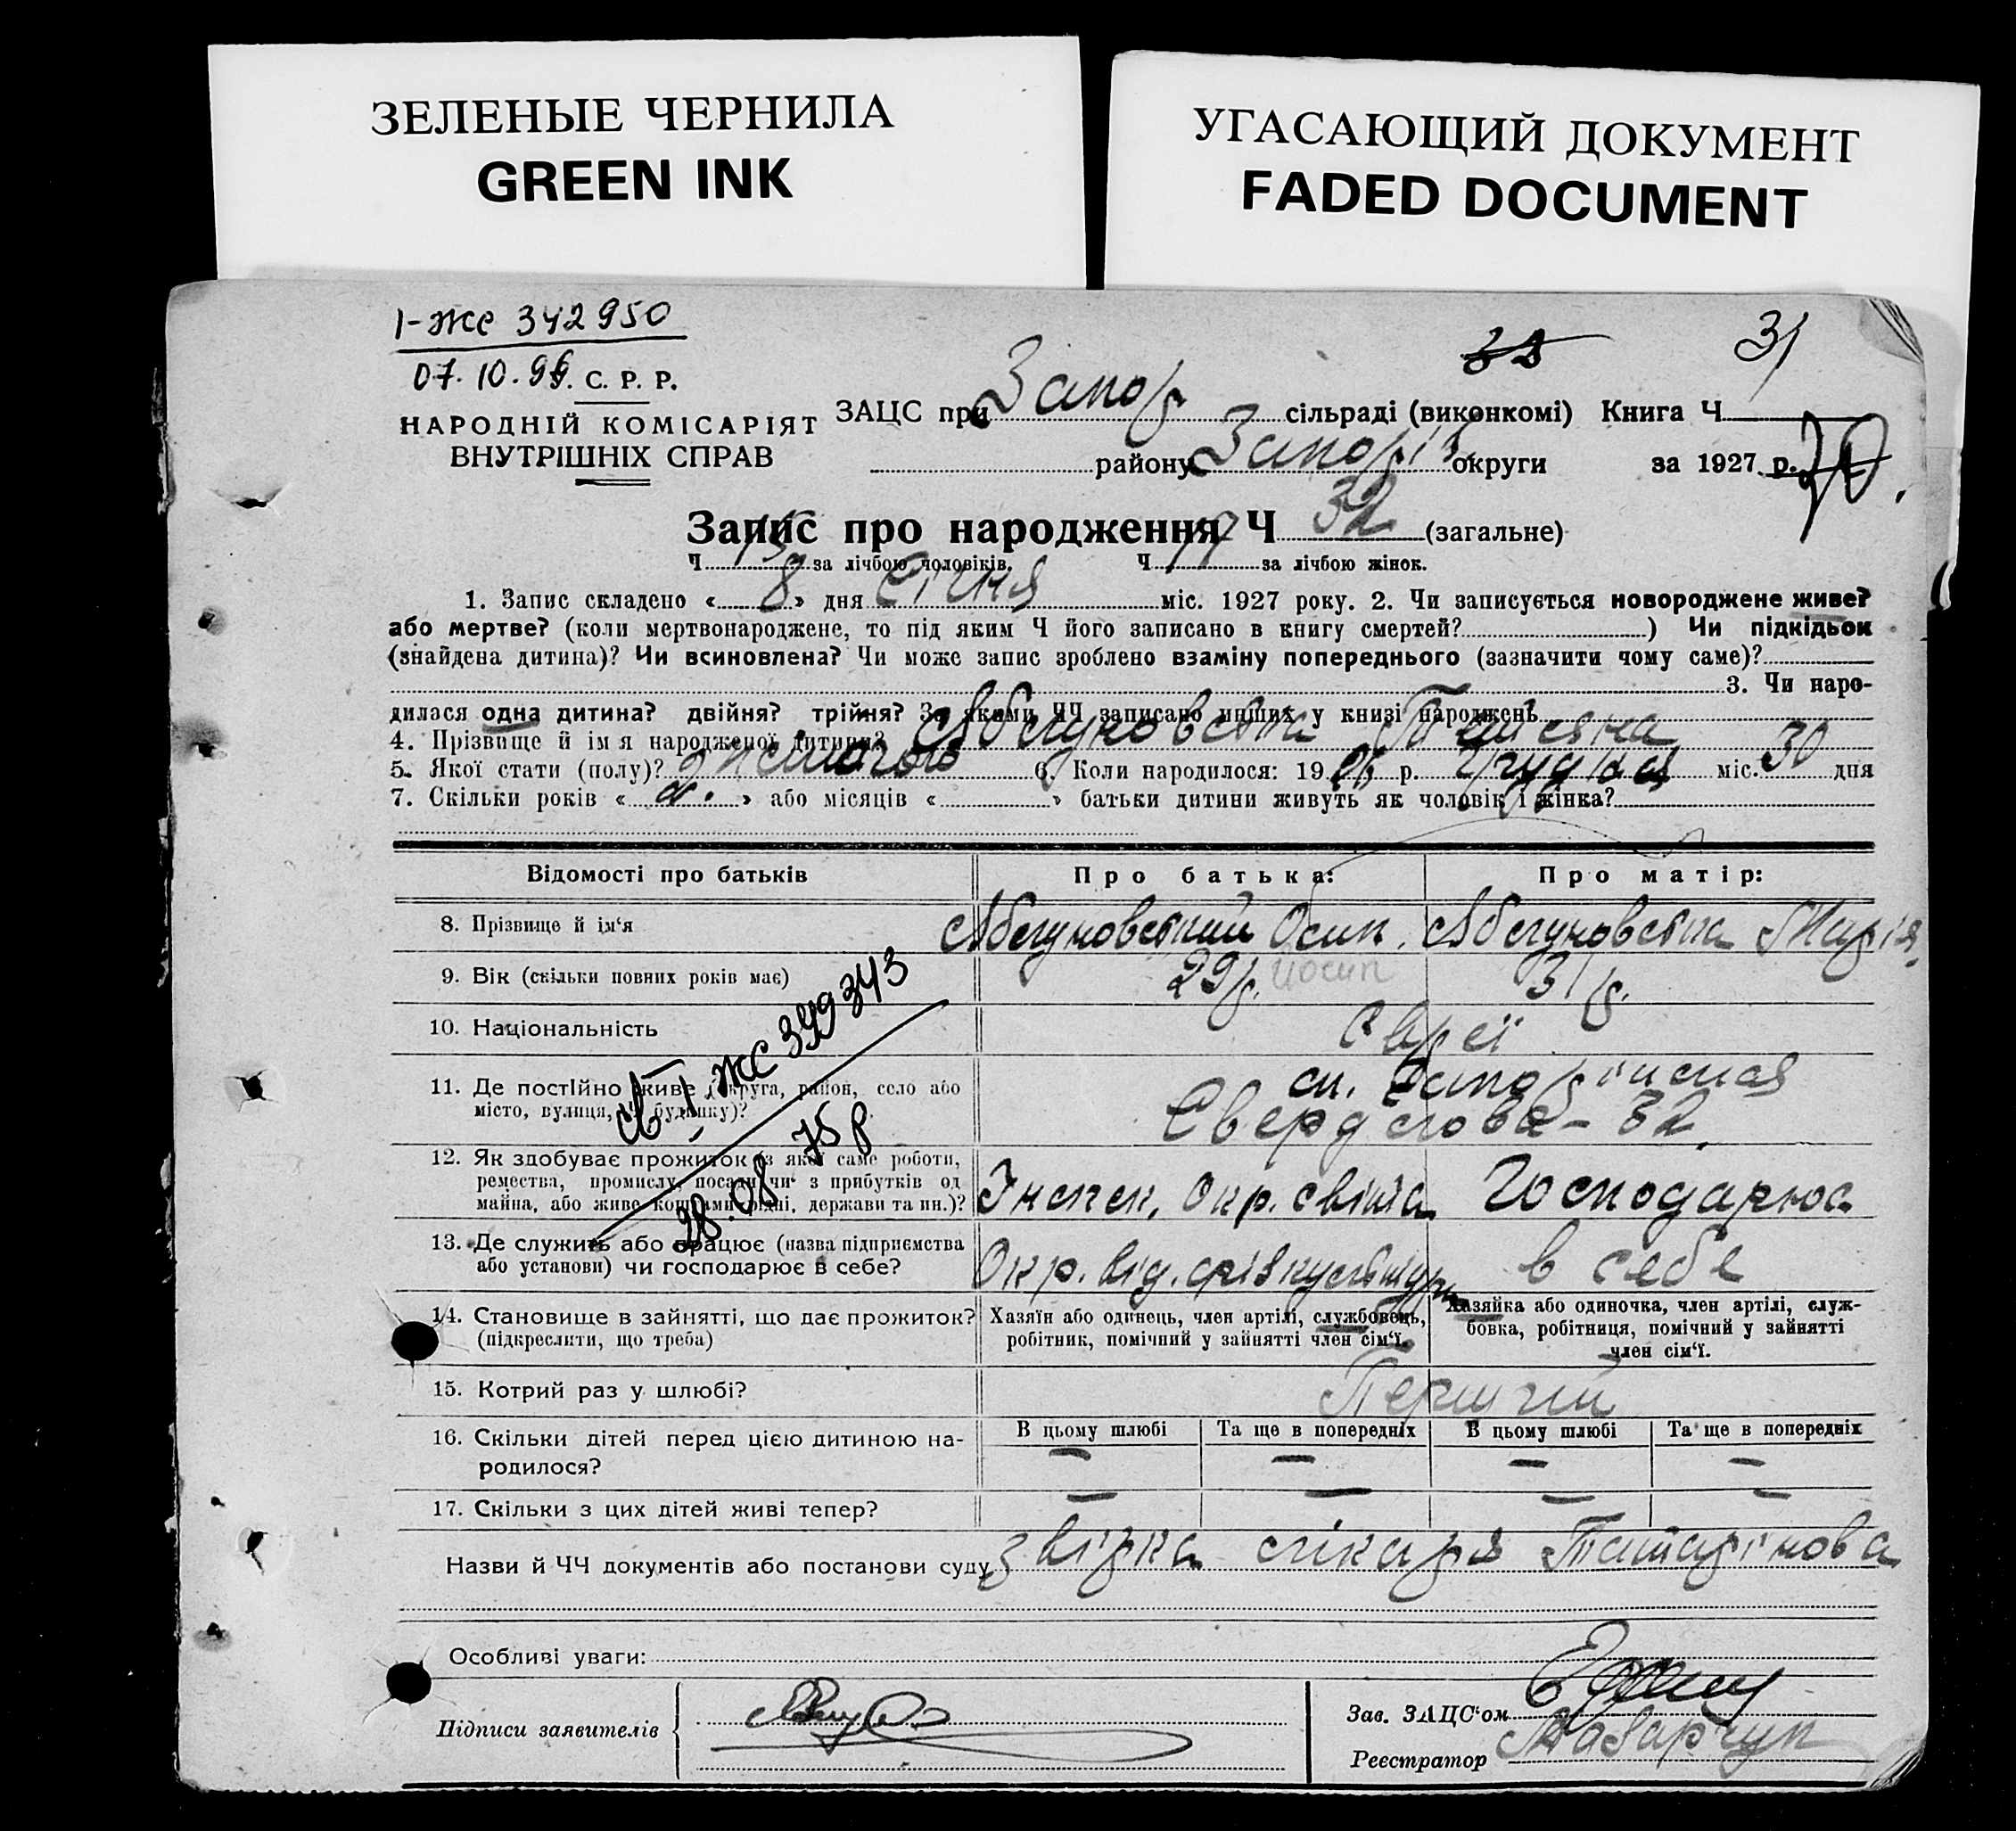 ЗЕЛЕНЫЕ ЧЕРНИЛА
GREEN INK
УГАСАЮЩИЙ ДОКУМЕНТ
FADED DOCUMENT
1-ЖС 342950
07.10.99
С. Р. Р.
НАРОДНІЙ КОМІСАРІЯТ
ВНУТРІШНІХ СПРАВ
32 31
ЗАЦС при Запор сільраді (виконкомі) Книга Ч
району Запоріз округи за 1927 р. 70.
Запис про народження Ч 32 (загальне)
Ч 15 за лічбою чоловіків. Ч 17 за лічбою жінок.
1. Запис складено « 8 » дня Січня міс. 1927 року. 2. Чи записується новороджене живе?
або мертве? (коли мертвонароджене, то під яким Ч його записано в книгу смертей? ) Чи підкідьок
(знайдена дитина)? Чи всиновлена? Чи може запис зроблено взаміну попереднього (зазначити чому саме)?
3. Чи наро-
дилася одна дитина? двійня? трійня? За якими ЧЧ записано инших у книзі народжень
4. Прізвище й ім я народженої дитини?
5. Якої стати (полу)? жіночого 6. Коли народилося: 19 26 р. Грудня міс. 30 дня
7. Скільки років « 2. » або місяців « » батьки дитини живуть як чоловік і жінка?
Відомості про батьків Про батька: Про матір:
8. Прізвище й ім‘я Абгуновський Осип. Абгуновська Марія
9. Вік (скільки повних років має) 29 р. Йосип 31 р.
10. Національність Євреї
11. Де постійно живе (округа, район, село або
місто, вулиця, Ч будинку)? Свердлова - 32.
12. Як здобуває прожиток (з якої саме роботи,
ремества, промислу, посади чи з прибутків од
майна, або живе коштами рідні, держави та ин.)? Інспек. Окр. світи Господарює
13. Де служить або працює (назва підприємства
або установи) чи господарює в себе? Окр. від. фізкультури в себе
I ЖС 399343
28.08 75 р
14. Становище в зайнятті, що дає прожиток?
(підкреслити, що треба)
Хазяїн або одинець, член артілі, службовець,
робітник, помічний у зайнятті член сім‘ї.
Хазяйка або одиночка, член артілі, служ-
бовка, робітниця, помічний у зайнятті
член сім‘ї.
15. Котрий раз у шлюбі? Перший
16. Скільки дітей перед цією дитиною на-
родилося?
В цьому шлюбі Та ще в попередніх В цьому шлюбі Та ще в попередніх
— — — —
17. Скільки з цих дітей живі тепер? — — — —
Назви й ЧЧ документів або постанови суду звірка лікаря Татарінова
Особливі уваги:
Підписи заявителів
Зав. ЗАЦС‘ом
Реєстратор